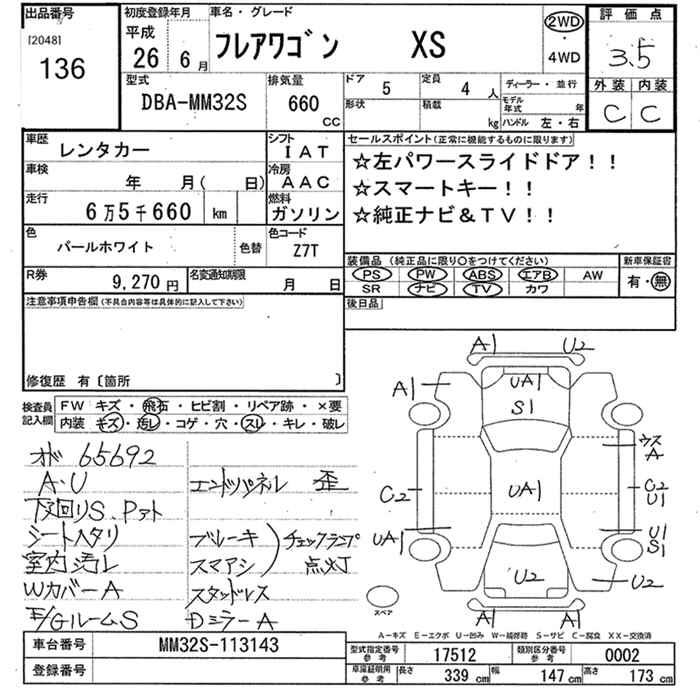 出品番号
[2048]
136
初度登録年月
平成
26 6月
車名・グレード
フレアワゴン XS
2WD
・
4WD
評価点
3.5
外装 内装
C C
型式
DBA-MM32S
排気量
660
CC
ドア
5
定員
4 人
形状
積載
kg
ディーラー・並行
モデル年式 年
ハンドル 左・右
車歴
レンタカー
シフト
IAT
車検
年 月( 日)
冷房
AAC
走行
6万5千660 km
燃料
ガソリン
色
パールホワイト
色替
色コード
Z7T
R券
9,270 円
名変通知期限
月 日
セールスポイント(正常に機能するものに限ります)
☆左パワースライドドア！！
☆スマートキー！！
☆純正ナビ＆TV！！
装備品 (純正品に限り○をつけてください)
新車保証書
PS PW ABS エアB AW
SR ナビ TV カワ
有・無
後日品
注意事項申告欄(不具合内容等は具体的に記入して下さい)
修復歴 有〔箇所 〕
検査員
記入欄
FW キズ・飛石・ヒビ割・リペア跡・×要
内装 キズ・汚レ・コゲ・穴・スレ・キレ・破レ
オド 65692
A・U
下回りS.Pアト
シートヘタリ
室内汚レ
WカバーA
E/GルームS
エンドパネル 歪
ブレーキ
スマアシ
チェックランプ
点灯
スタッドレス
DミラーA
A1 U2
A1
UA1
S1
ウス
A
C2
UA1
C2
U1
UA1
U1
S1
U2
U2
A1 A1
スペア
A－キズ E－エクボ U－凹み W－補修跡 S－サビ C－腐食 XX－交換済
車台番号
MM32S-113143
登録番号
型式指定番号
参考
17512
類別区分番号
参考
0002
車庫証明用
参考
長さ
339 cm
幅
147 cm
高さ
173 cm